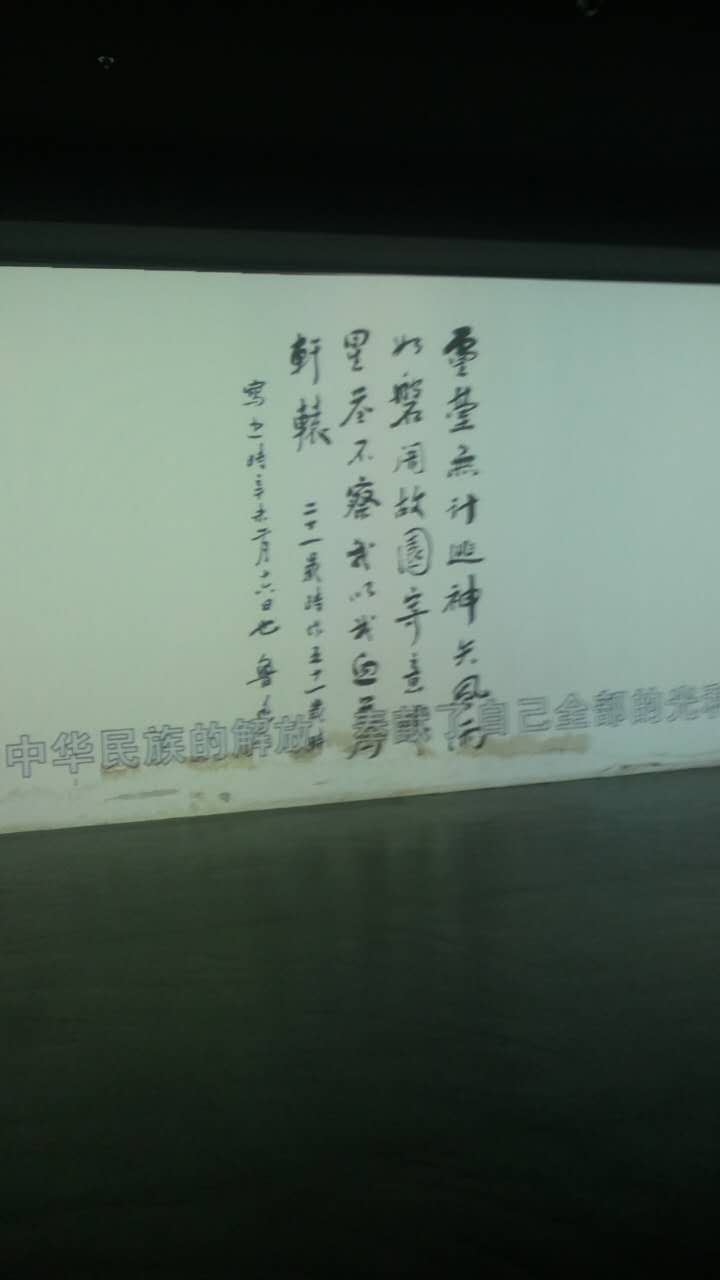 靈臺無計逃神矢風雨
如磐闇故園寄意
星荃不察我以我血薦
軒轅 二十一歲時作五十一歲時
寫之時辛未二月十六日也 魯迅
中华民族的解放，奉献了自己全部的光